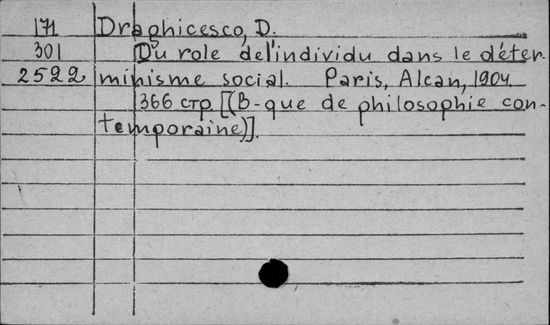 171 Draghicesco, D.
301 Du role de l'individu dans le déter-
2522 minisme social. Paris, Alcan, 1904.
366 стр. [(B-que de philosophie con-
temporaine)].